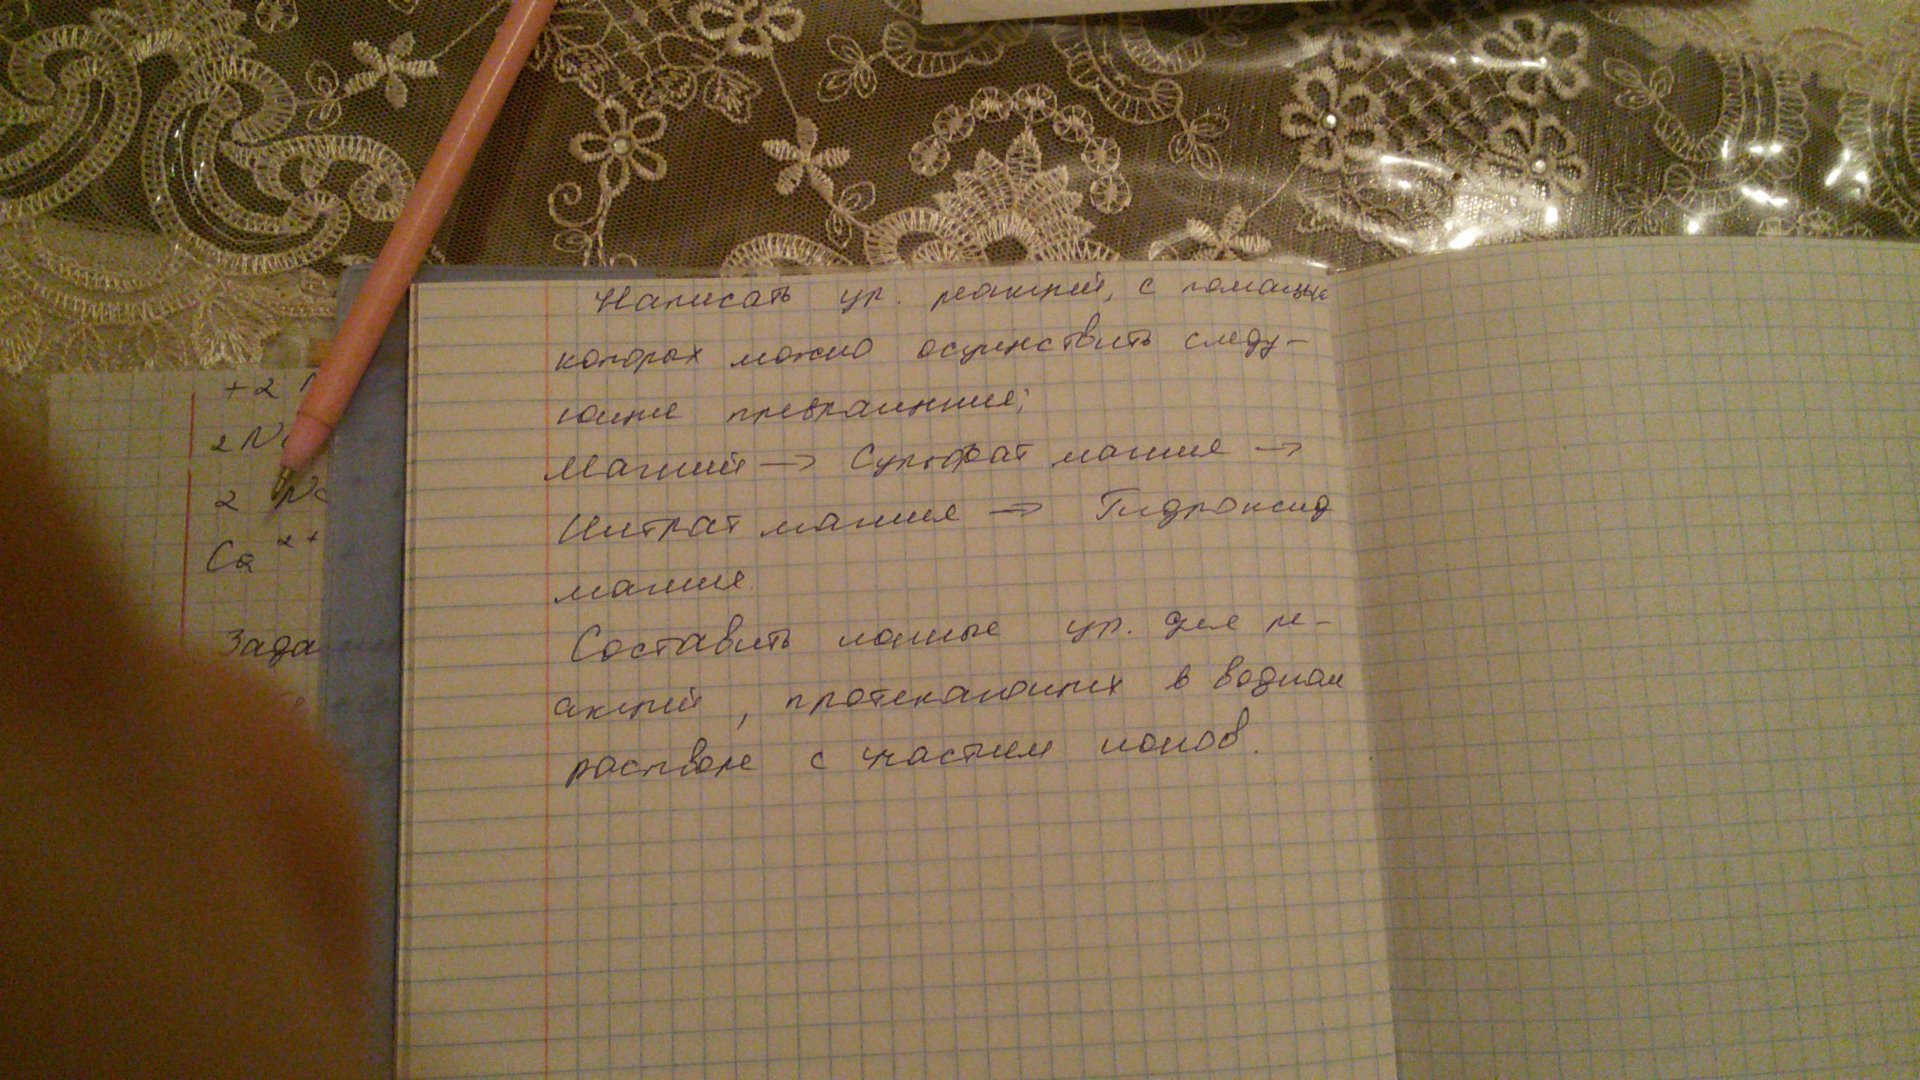 +2 N
2 Na
2 Na
Ca 2+
Зада
Написать ур. реакций, с помощью
которых можно осуществить следу-
ющие превращения:
Магний → Сульфат магния →
Нитрат магния → Гидроксид
магния.
Составить ионные ур. для ре-
акций, протекающих в водном
растворе с участием ионов.